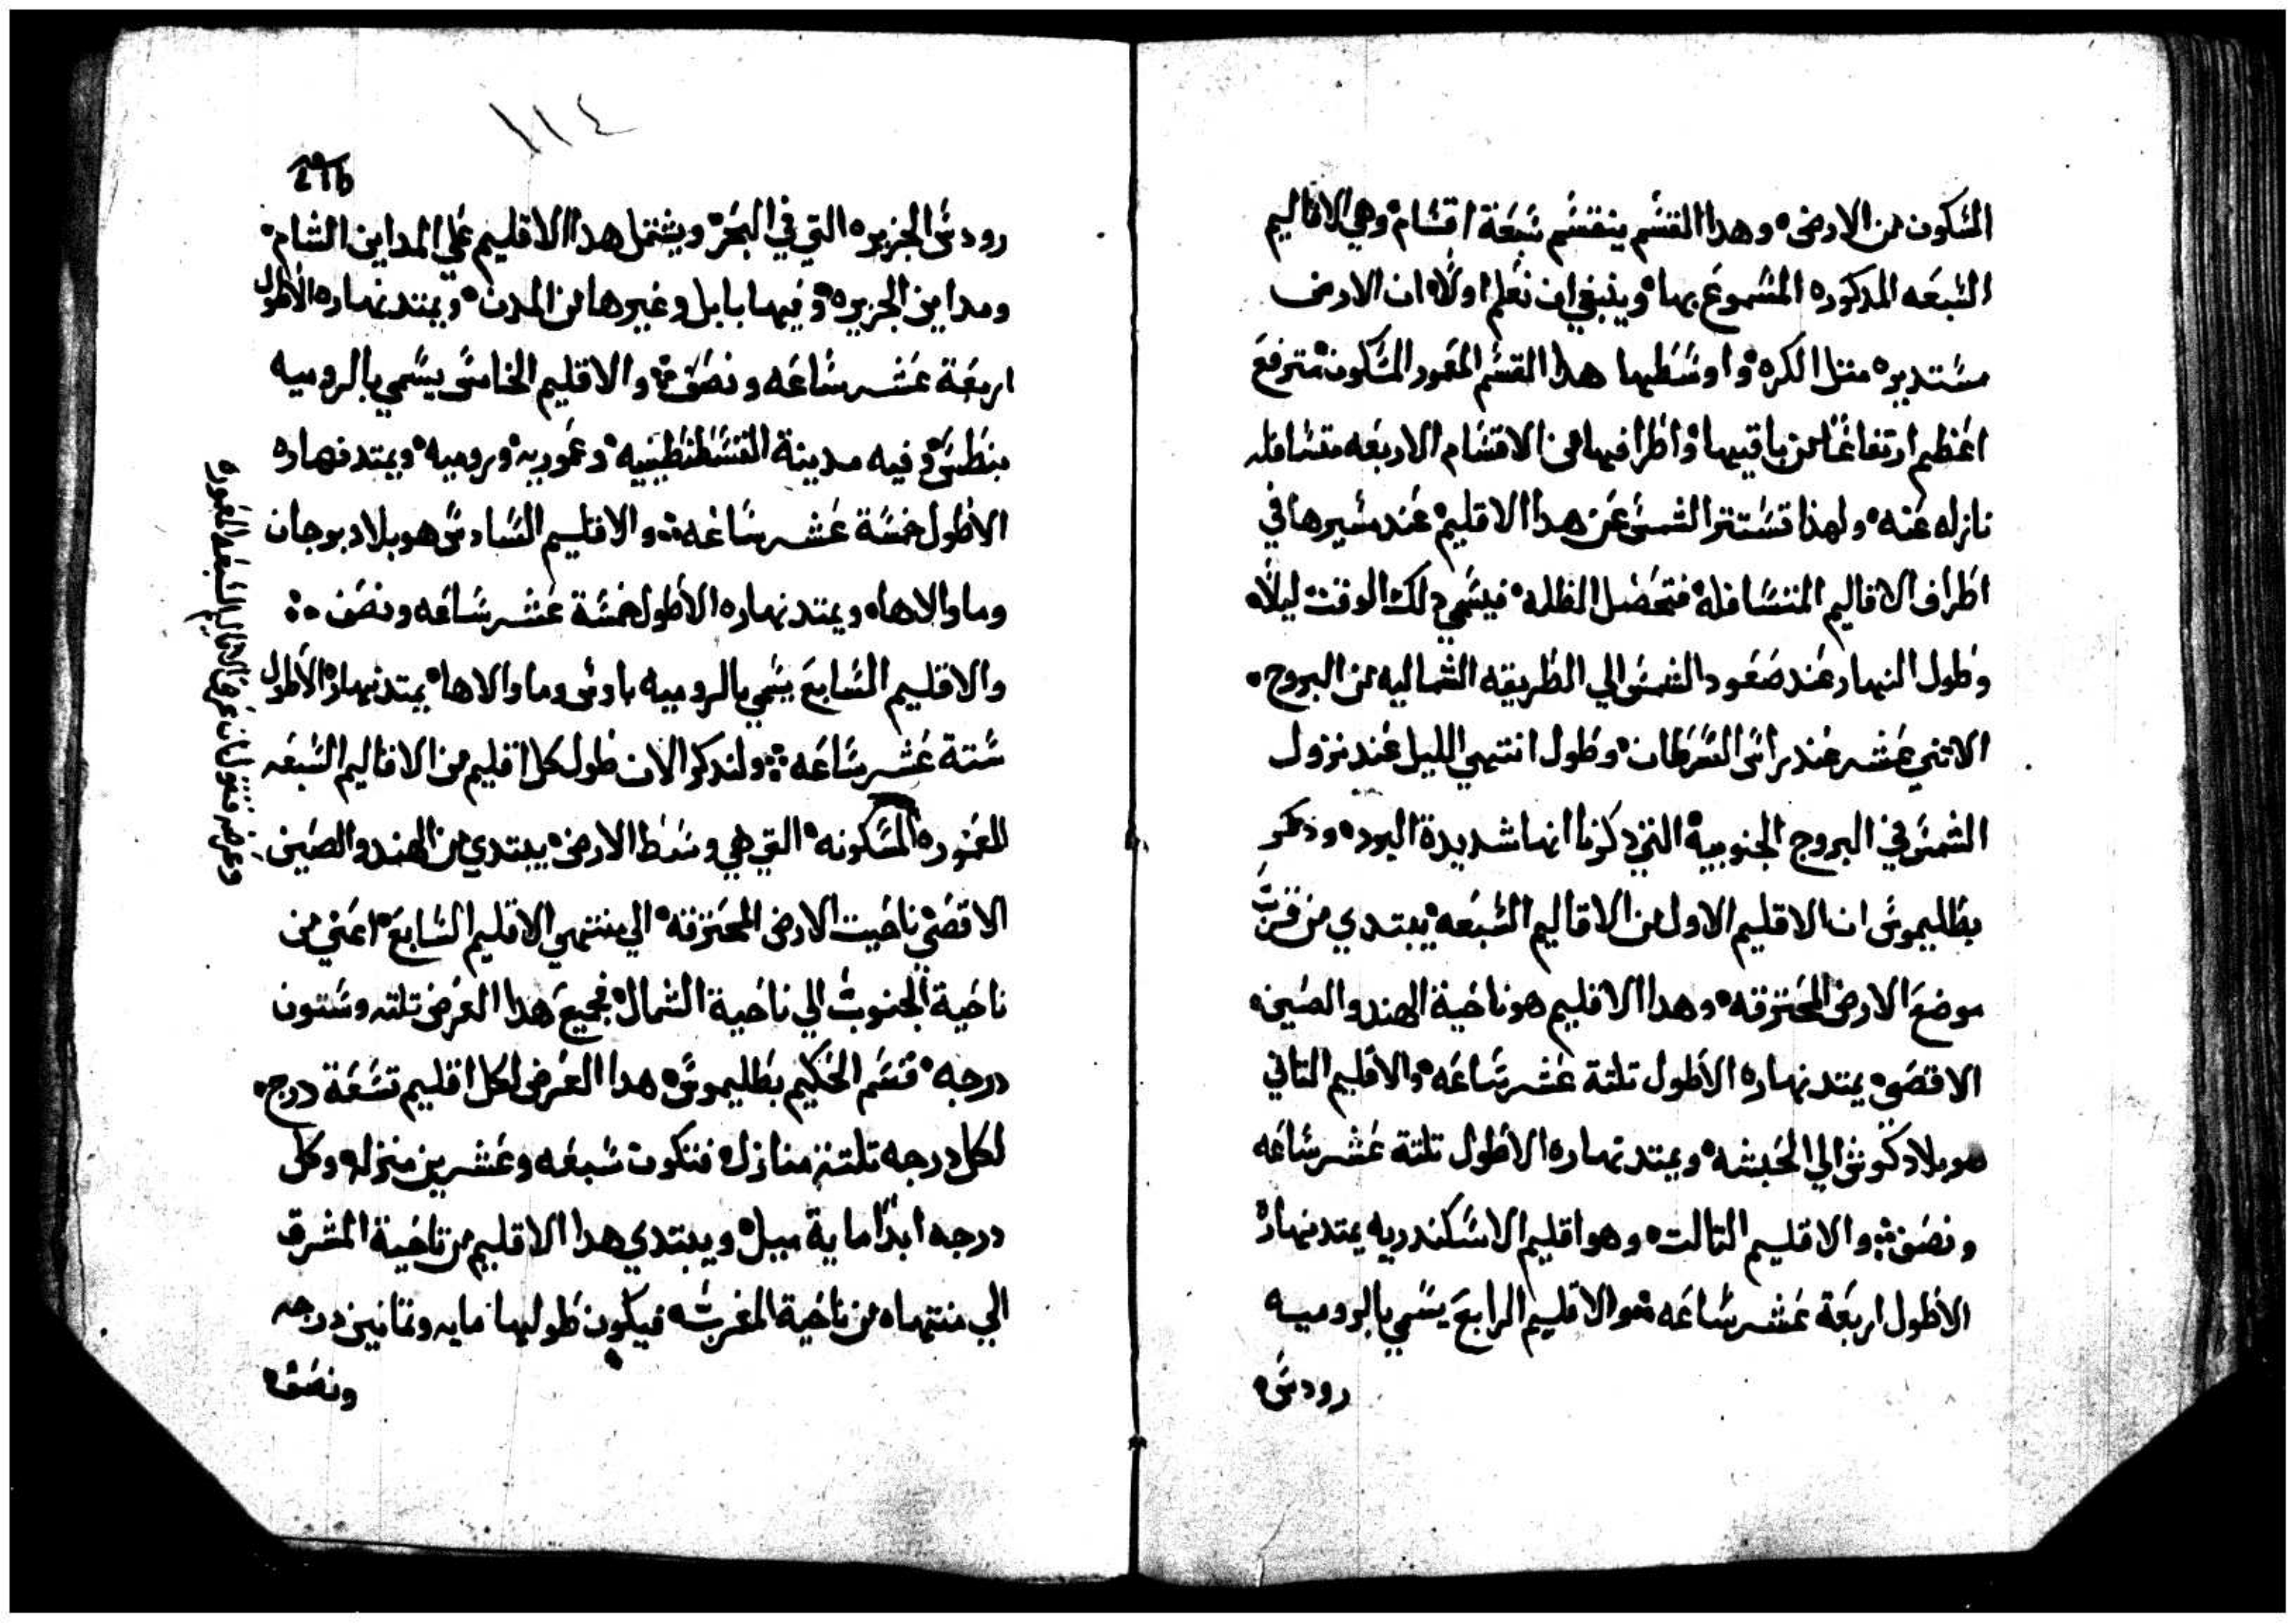 المسكون من الارض، وهدا القسم ينقسم سبعة اقسام، وهي الاقاليم
السبعه المدكوره المسموع بها، وينبغي ان نعلم اولاً، ان الارض
مستديره متل الكره، واوسطها هدا القسم المعمور المسكون، مترفع
اعظم ارتفاعًا من باقيها، واطرافها من الاقسام الاربعه متسافله
نازله عنه، ولهذا تستتر الشمس عن هدا الاقليم، عند مسيرها في
اطراف الاقاليم المتسافله، فتحصل الظلمه، فيسمي دلك الوقت ليلاً،
وطول النهار عند صعود الشمس الي الطريقه الشماليه من البروج،
الاتني عشر عند راس السرطان، وطول انتهي الليل عند نزول
الشمس في البروج الجنوبية، التي دكرنا انها شديدة البرد، ودكر
بطليموس ان الاقليم الاول من الاقاليم السبعه، يبتدي من قرب
موضع الارض المحترقه، وهدا الاقليم هو ناحية الهند والصين،
الاقصي، يمتد نهاره الاطول تلتة عشر ساعه، والاقليم التاني
هو بلاد كوش الي الحبشه، ويمتد نهاره الاطول تلتة عشر ساعه
ونصف، والاقليم التالت، وهو اقليم الاسكندريه يمتد نهاره
الاطول اربعة عشر ساعه، والاقليم الرابع يسمي بالروميه
رودس،
١١٤
رودس الجزيره، التي في البحر، ويشتمل هدا الاقليم علي المداين الشام،
ومداين الجزيره، وفيها بابل وغيرها من المدن، ويمتد نهاره الاطول
اربعة عشر ساعه ونصف، والاقليم الخامس يسمي بالروميه
بنطس، وفيه مدينة القسطنطينيه، وعموريه، وروميه، ويمتد نهاره
الاطول خمسة عشر ساعه، والاقليم السادس هو بلاد بوجان
وما والاها، ويمتد نهاره الاطول خمسة عشر ساعه ونصف،
والاقليم السابع يسمي بالروميه بادس وما والاها، يمتد نهاره الاطول
ستة عشر ساعه، ولندكر الان طول كل اقليم من الاقاليم السبعه
المعموره المسكونه، التي هي وسط الارض، يبتدي من الهند والصين
الاقصي، ناحيت الارض المحترقه، الي منتهي الاقليم السابع، اعني من
ناحية الجنوب، الي ناحية الشمال، فجميع هدا العرض تلته وستون
درجه، قسم الحكيم بطليموس، هدا العرض لكل اقليم تسعة درج،
لكل درجه تلتة منازل، فتكون سبعه وعشرين منزله، وكل
درجه ابدًا ماية ميل، ويبتدي هدا الاقليم من ناحية المشرق
الي منتهاه من ناحية المغرب، فيكون طولها مايه وتمانين درجه
ونصف،
وعرض فنقول ان عرض الاقاليم السبعه المعموره